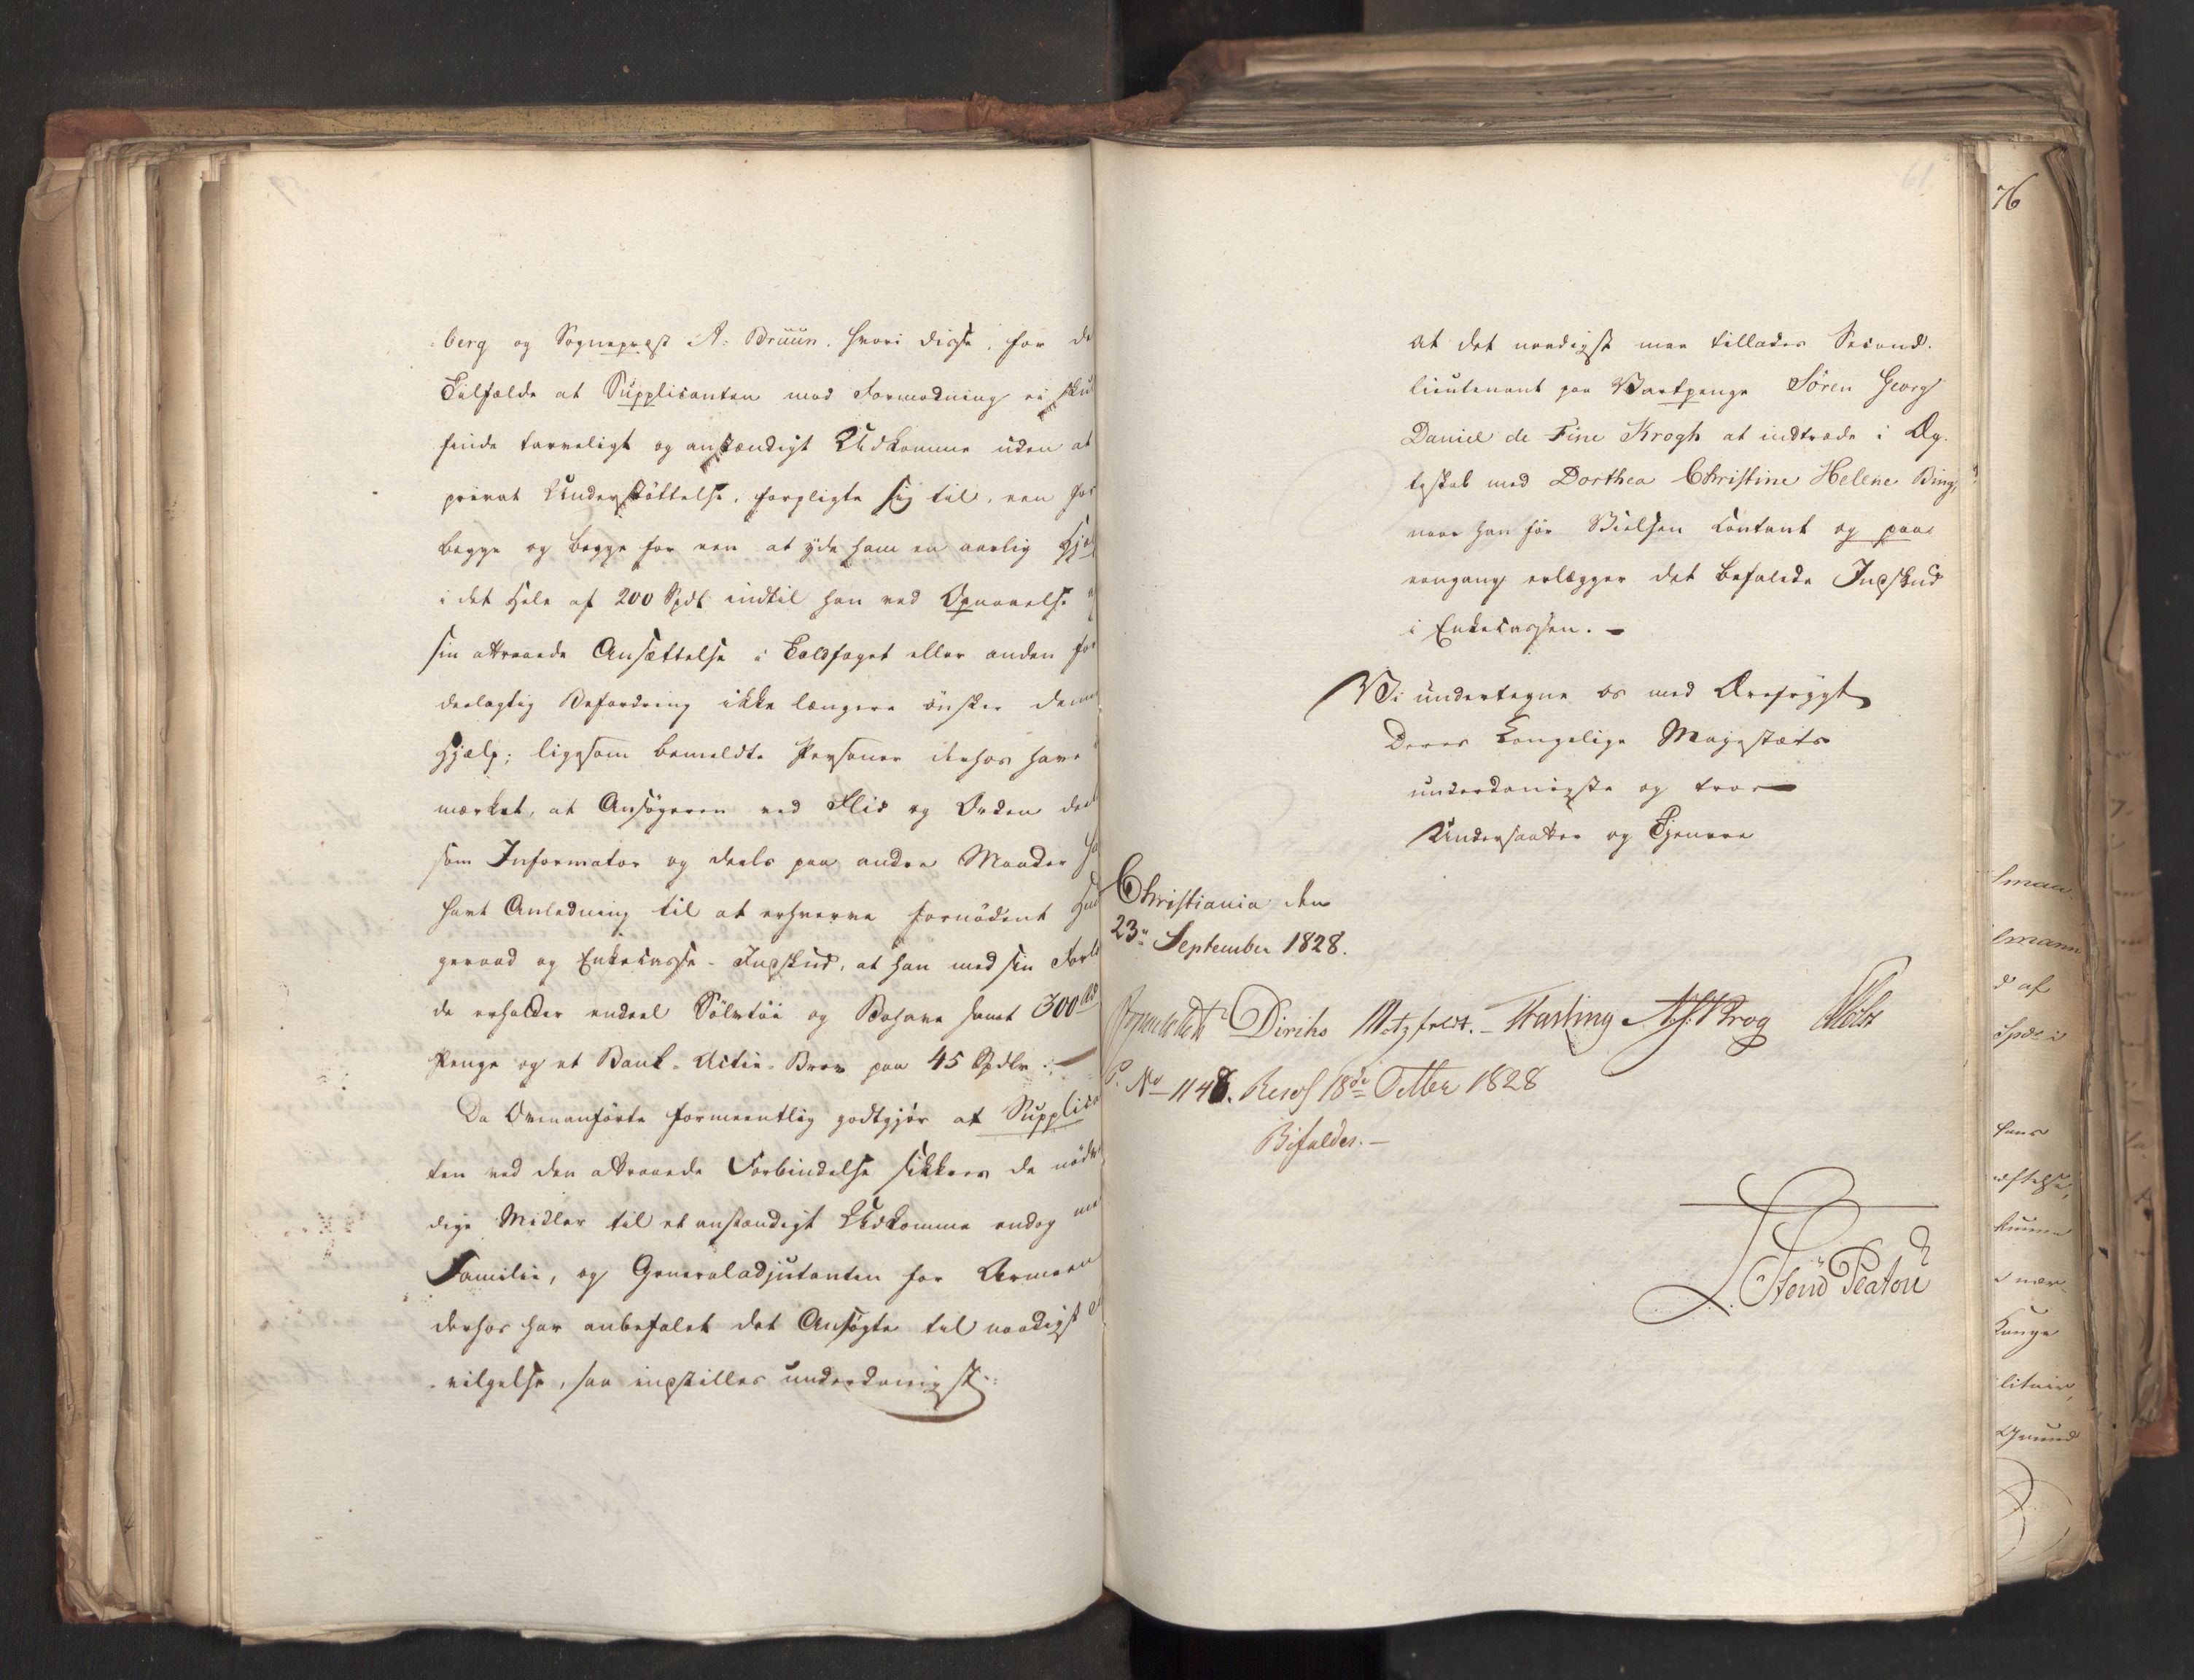 berg og Sogneprest A: Bruun. hvori disse, for de
Tilfælde at Supplicanten mod Formodning ei sku
finde tarveligt og anstændigt Udkomme uden at
privat Understøttelse, forpligte sig til, een for
begge og begge for een at yde ham en aarlig Hjel
i det Hele af 200 Spdl indtil han ved Opnaaelse
sin attraaede Ansættelse i Toldfaget eller anden for
deelagtig Befordring ikke længere ønsker denne
Hjælp; ligesom bemeldte Personer derhos have
mærket, at Ansøgeren ved Flid og Orden deels
som Informator og deels paa andre Maader ha
havt Anledning til at erhverve fornødent Huus
geraad og Enkecasse-Indskud, at han med sin Forlo
de erholder endeel Sölvtöi og Bohave samt 300
Penge og et Bank-Actie-Brev paa 45 Spdlr.
Da Ovenanførte formeentlig godtgjør at Supplica
ten ved den attraaede Forbindelse sikkres de nödv
dige Midler til et anstændigt Udkomme endog me
Familie, og Generaladjutanten for Armeen
derhos har anbefalet det Ansøgte til naadigst
vilgelse, saa indstilles underdanigst:
61
at det naadigst maa tillades Second-
lieutenant paa Vartpenge Sören Georg
Daniel de Fine Krogh at indtræde i Æg-
teskab med Dorthea Christine Helene Bing,
naar han för Vielsen contant og paa
eengang erlægger det befalede Indskud
i Enkecassen.-
Vi undertegne os med Ærefrygt
Deres Kongelige Majestæts
underdanigste og troe
Undersaatter og Tjenere
Christiania den
23de September 1828.
Diriks Motzfeldt. Fasting Krog Holst
P. No 1148. Resol 18de Octbr 1828
Bifaldes.-
76
smaa
lmann
d af
Spdr i
hans
kunne
nær-
Konge
litair,
Grund